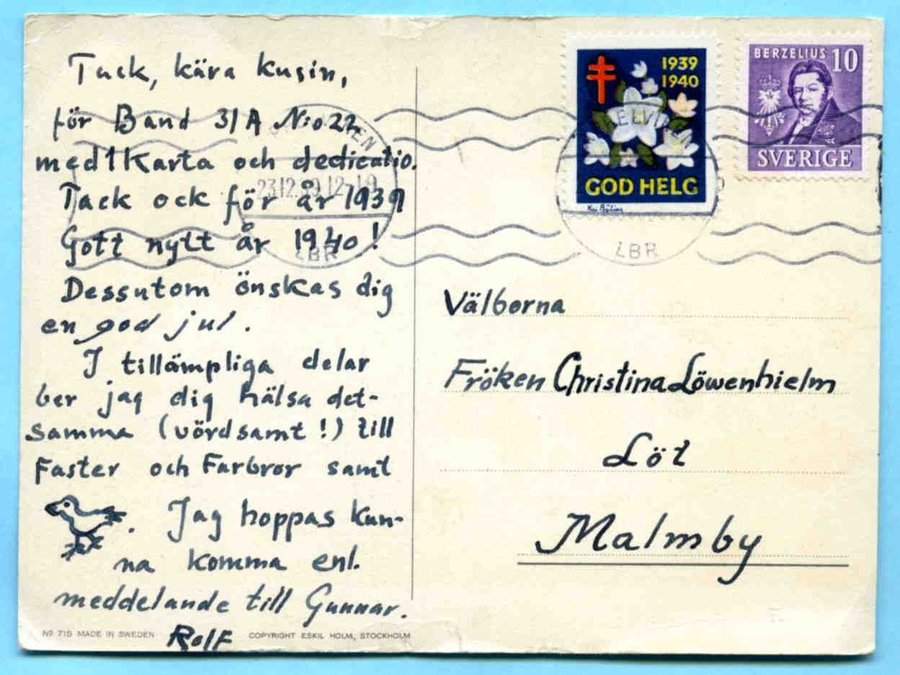 Tack, kära kusin,
för Band 31A N:o 22
med 1 Karta och dedicatio.
Tack ock för år 1939
Gott nytt år 1940!
Dessutom önskas dig
en god jul.
I tillämpliga delar
ber jag dig hälsa det-
samma (vördsamt!) till
Faster och Farbror samt
. Jag hoppas kun-
na komma enl.
meddelande till Gunnar.
Rolf
Nº 715 MADE IN SWEDEN
COPYRIGHT ESKIL HOLM, STOCKHOLM
1939
1940
GOD HELG
BERZELIUS 10
SVERIGE
23.12.39
LBR
LBR
Välborna
Fröken Christina Löwenhielm
Löt
Malmby